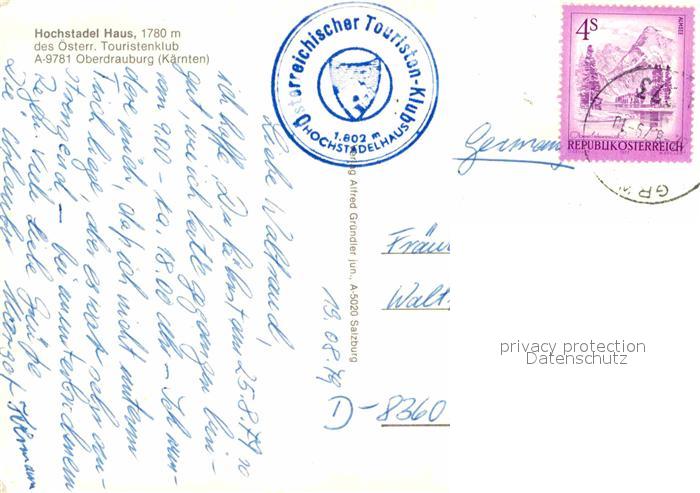 Hochstadel Haus, 1780 m
des Österr. Touristenklub
A-9781 Oberdrauburg (Kärnten)
Österreichischer Touristen-Klub
1.802 m
HOCHSTADELHAUS
4S
ALMSEE
REPUBLIK ÖSTERREICH
Germany
Verlag Alfred Gründler jun., A-5020 Salzburg
19.08.79
Liebe Waltraud,
ich hoffe, Du fährst am 25.8.79 so
gut wie ich heute gegangen bin –
von 9.00 – ca. 18.00 Uhr – Ich
daß ich nicht
aber es war sehr an-
strengend – bei
Regen. Viele liebe Grüße
Die Urlauber Margot
Fräu
Walt
D-8360
privacy protection
Datenschutz